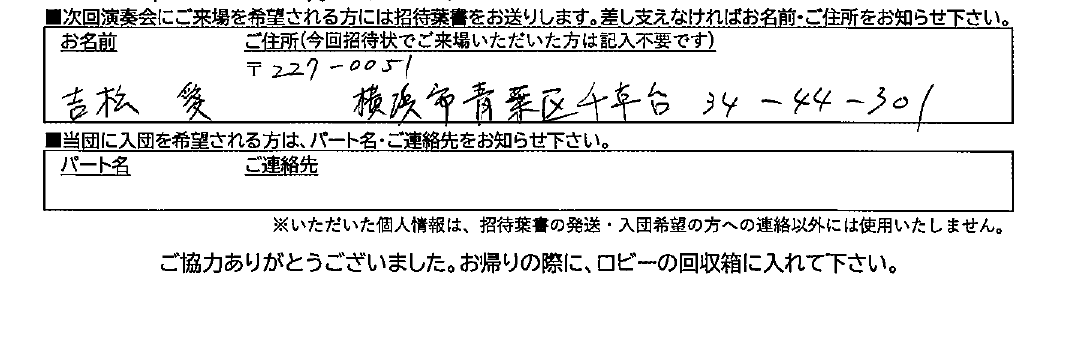 ■次回演奏会にご来場を希望される方には招待葉書をお送りします。差し支えなければお名前・ご住所をお知らせ下さい。
お名前 ご住所(今回招待状でご来場いただいた方は記入不要です)
〒227-0051
吉松 愛 横浜市青葉区千草台 34-44-301
■当団に入団を希望される方は、パート名・ご連絡先をお知らせ下さい。
パート名 ご連絡先
※いただいた個人情報は、招待葉書の発送・入団希望の方への連絡以外には使用いたしません。
ご協力ありがとうございました。お帰りの際に、ロビーの回収箱に入れて下さい。